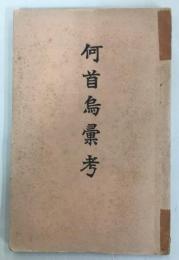 何首烏彙考